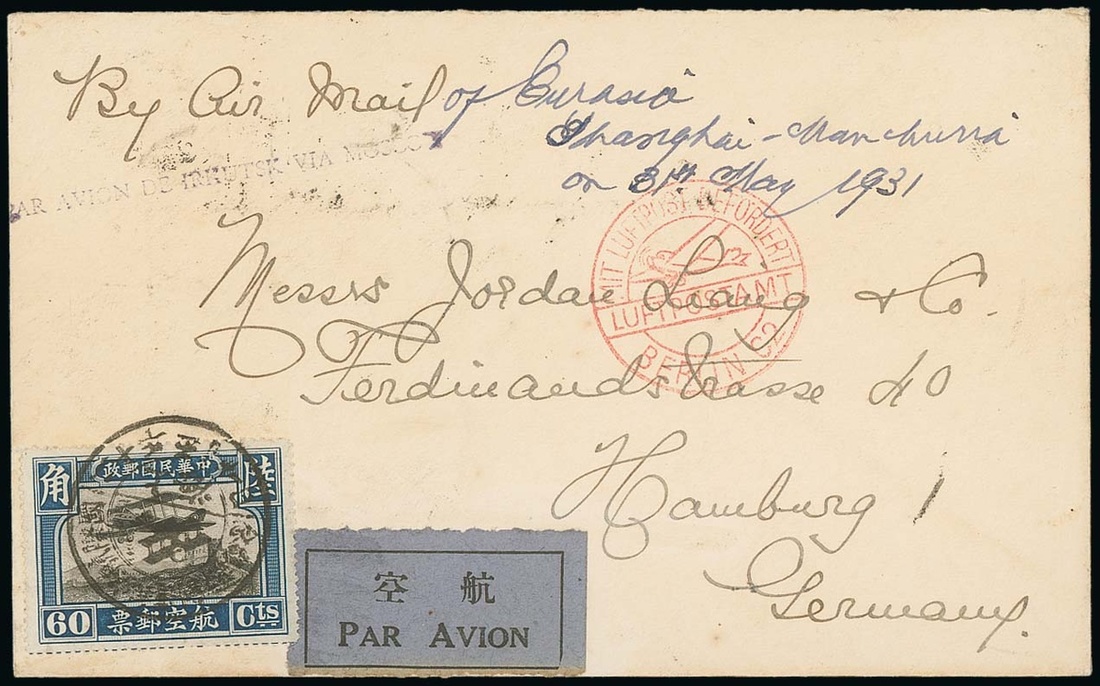 By Air Mail of Eurasia
Shanghai - Manchuria
on 31st May 1931
PAR AVION DE IRKUTSK VIA MOSCO
MIT LUFTPOST BEFÖRDERT
LUFTPOSTAMT
BERLIN C2
Messrs Jordan Liang & Co.
Ferdinandstrasse 40
Hamburg 1
Germany.
角 政郵國民華中 陸
60 票郵空航 Cts
空 航
PAR AVION